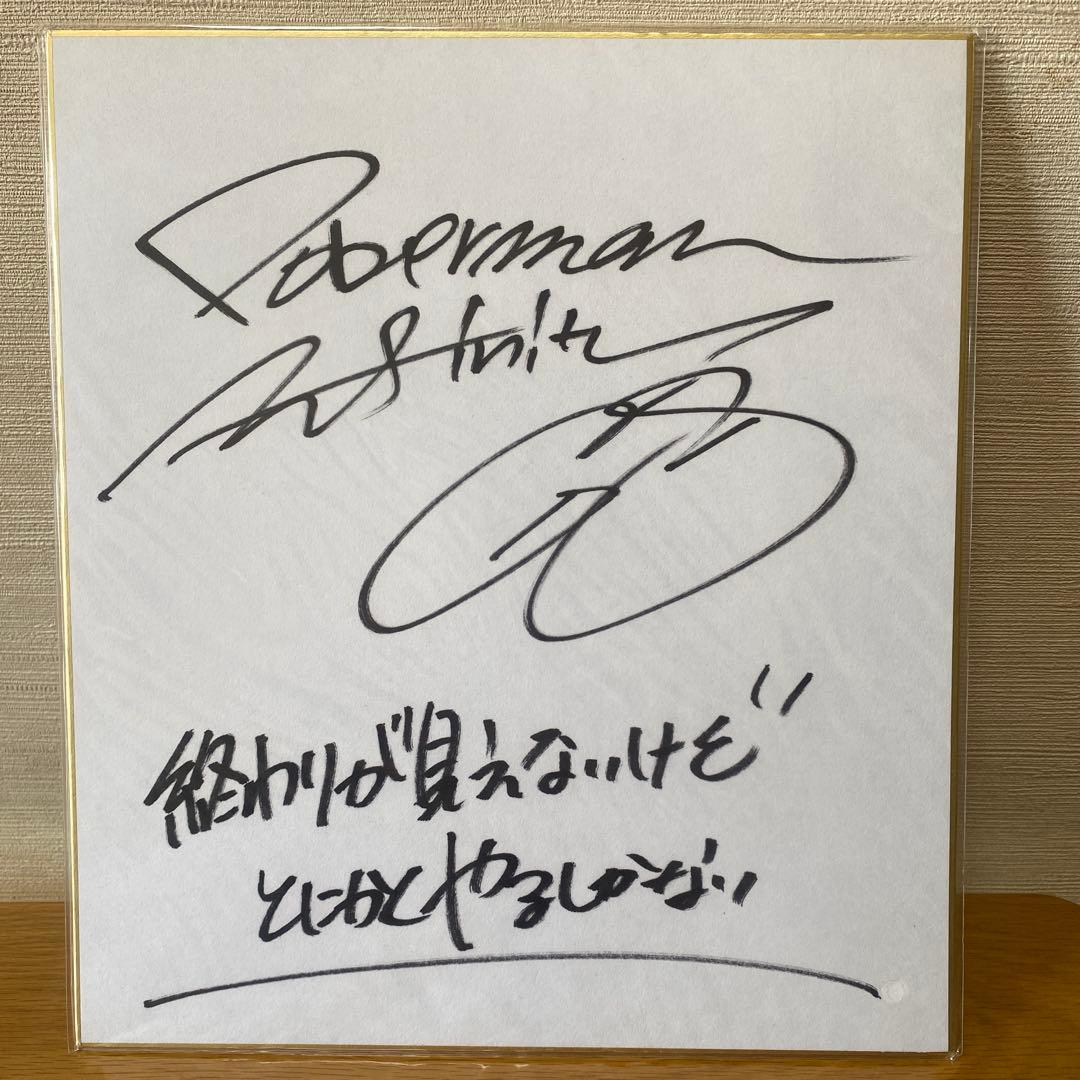 Doberman
Infinity
終わりが見えないけど
とにかくやるしかない